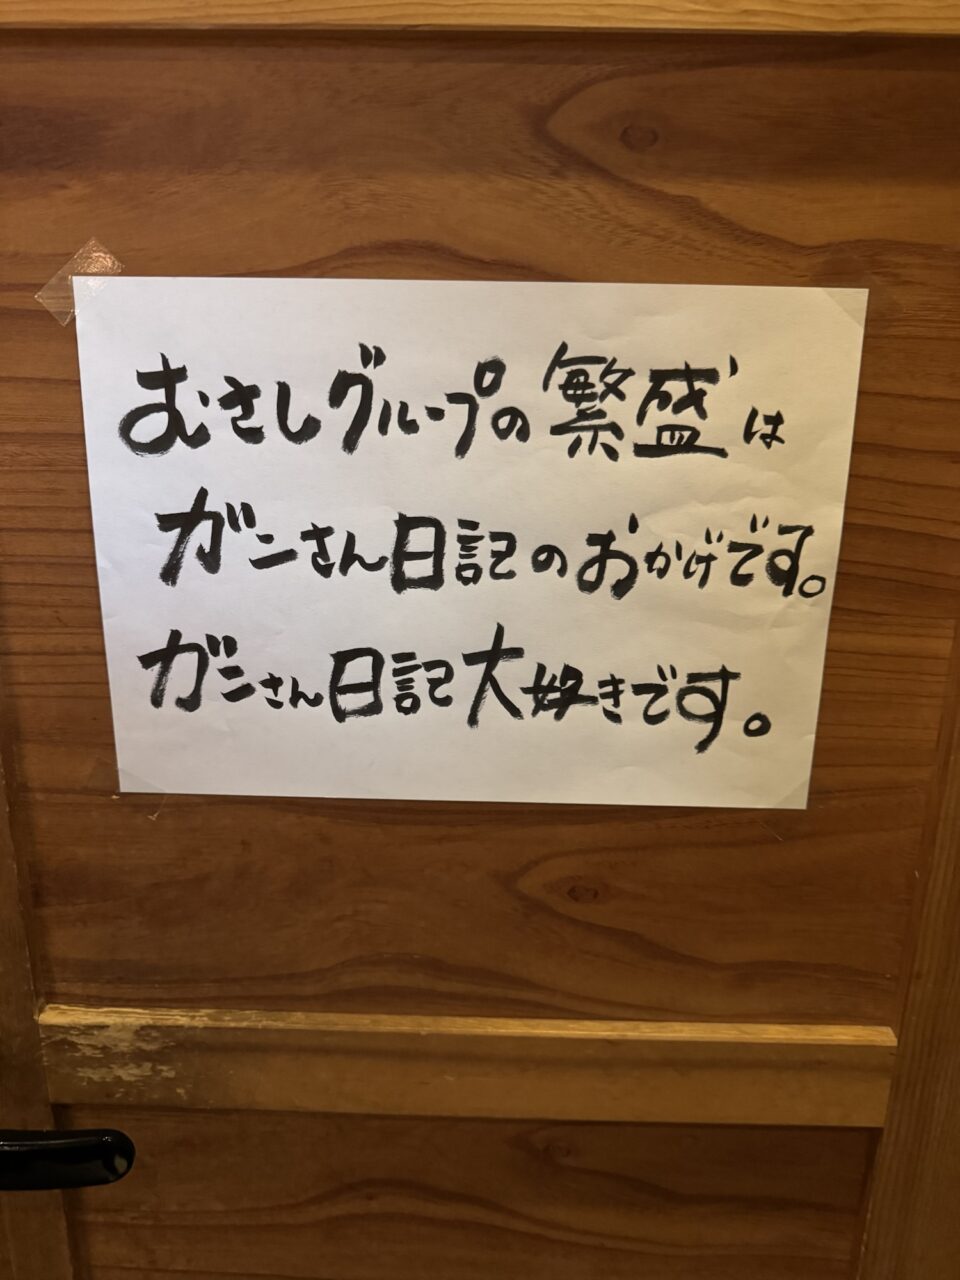 むさしグループの繁盛は
ガンさん日記のおかげです。
ガンさん日記大好きです。